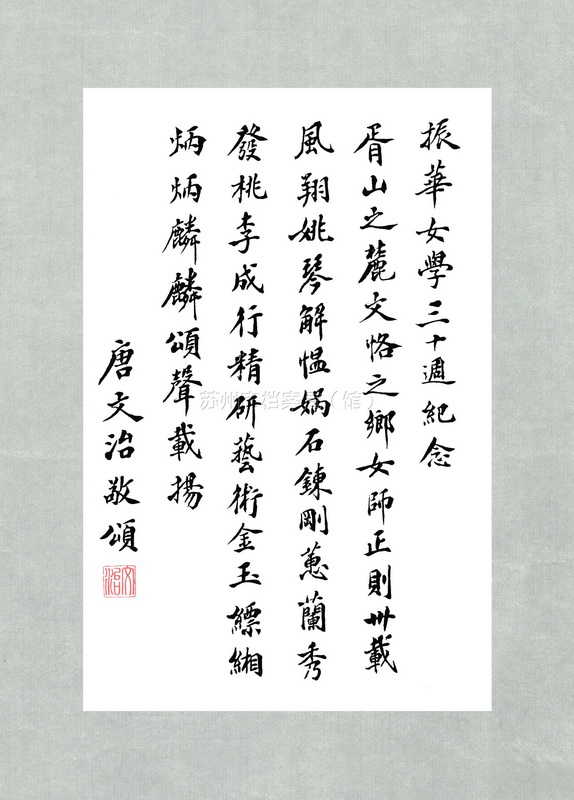 振華女學三十週紀念
胥山之麓文恪之鄉女師正則卅載
風翔姚琴解慍媧石鍊剛蕙蘭秀
發桃李成行精研藝術金玉縹緗
炳炳麟麟頌聲載揚
唐文治敬頌
文治
苏州市档案局（馆）